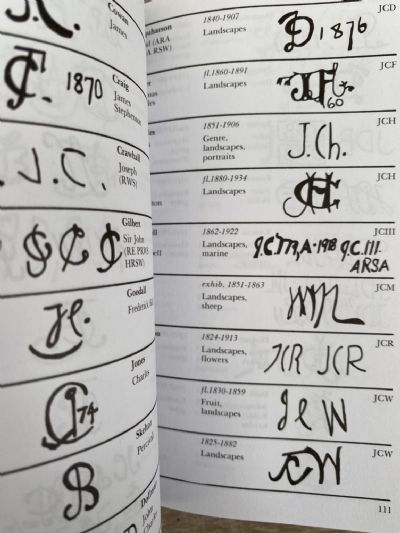 Cowan
James
1870
Craig
James
Stephenson
J.C.
Crawhall
Joseph
(RWS)
Gilbert
Sir John
HRSW)
Goodall
Jones
Charles
Skelton
74
(ARA
RSW)
1840-1907
Landscapes
1876
JCD
fl.1860-1891
Landscapes
60
JCF
1851-1906
Genre,
landscapes,
portraits
J.Ch.
JCH
fl.1880-1934
Landscapes
JCH
1862-1922
Landscapes,
marine
J.C.III.
ARSA
JCIII
exhib. 1851-1863
Landscapes,
sheep
JCM
1824-1913
Landscapes,
flowers
JCR JCR
JCR
fl.1830-1859
Fruit,
landscapes
JCW
1825-1882
Landscapes
JCW
JCW
111